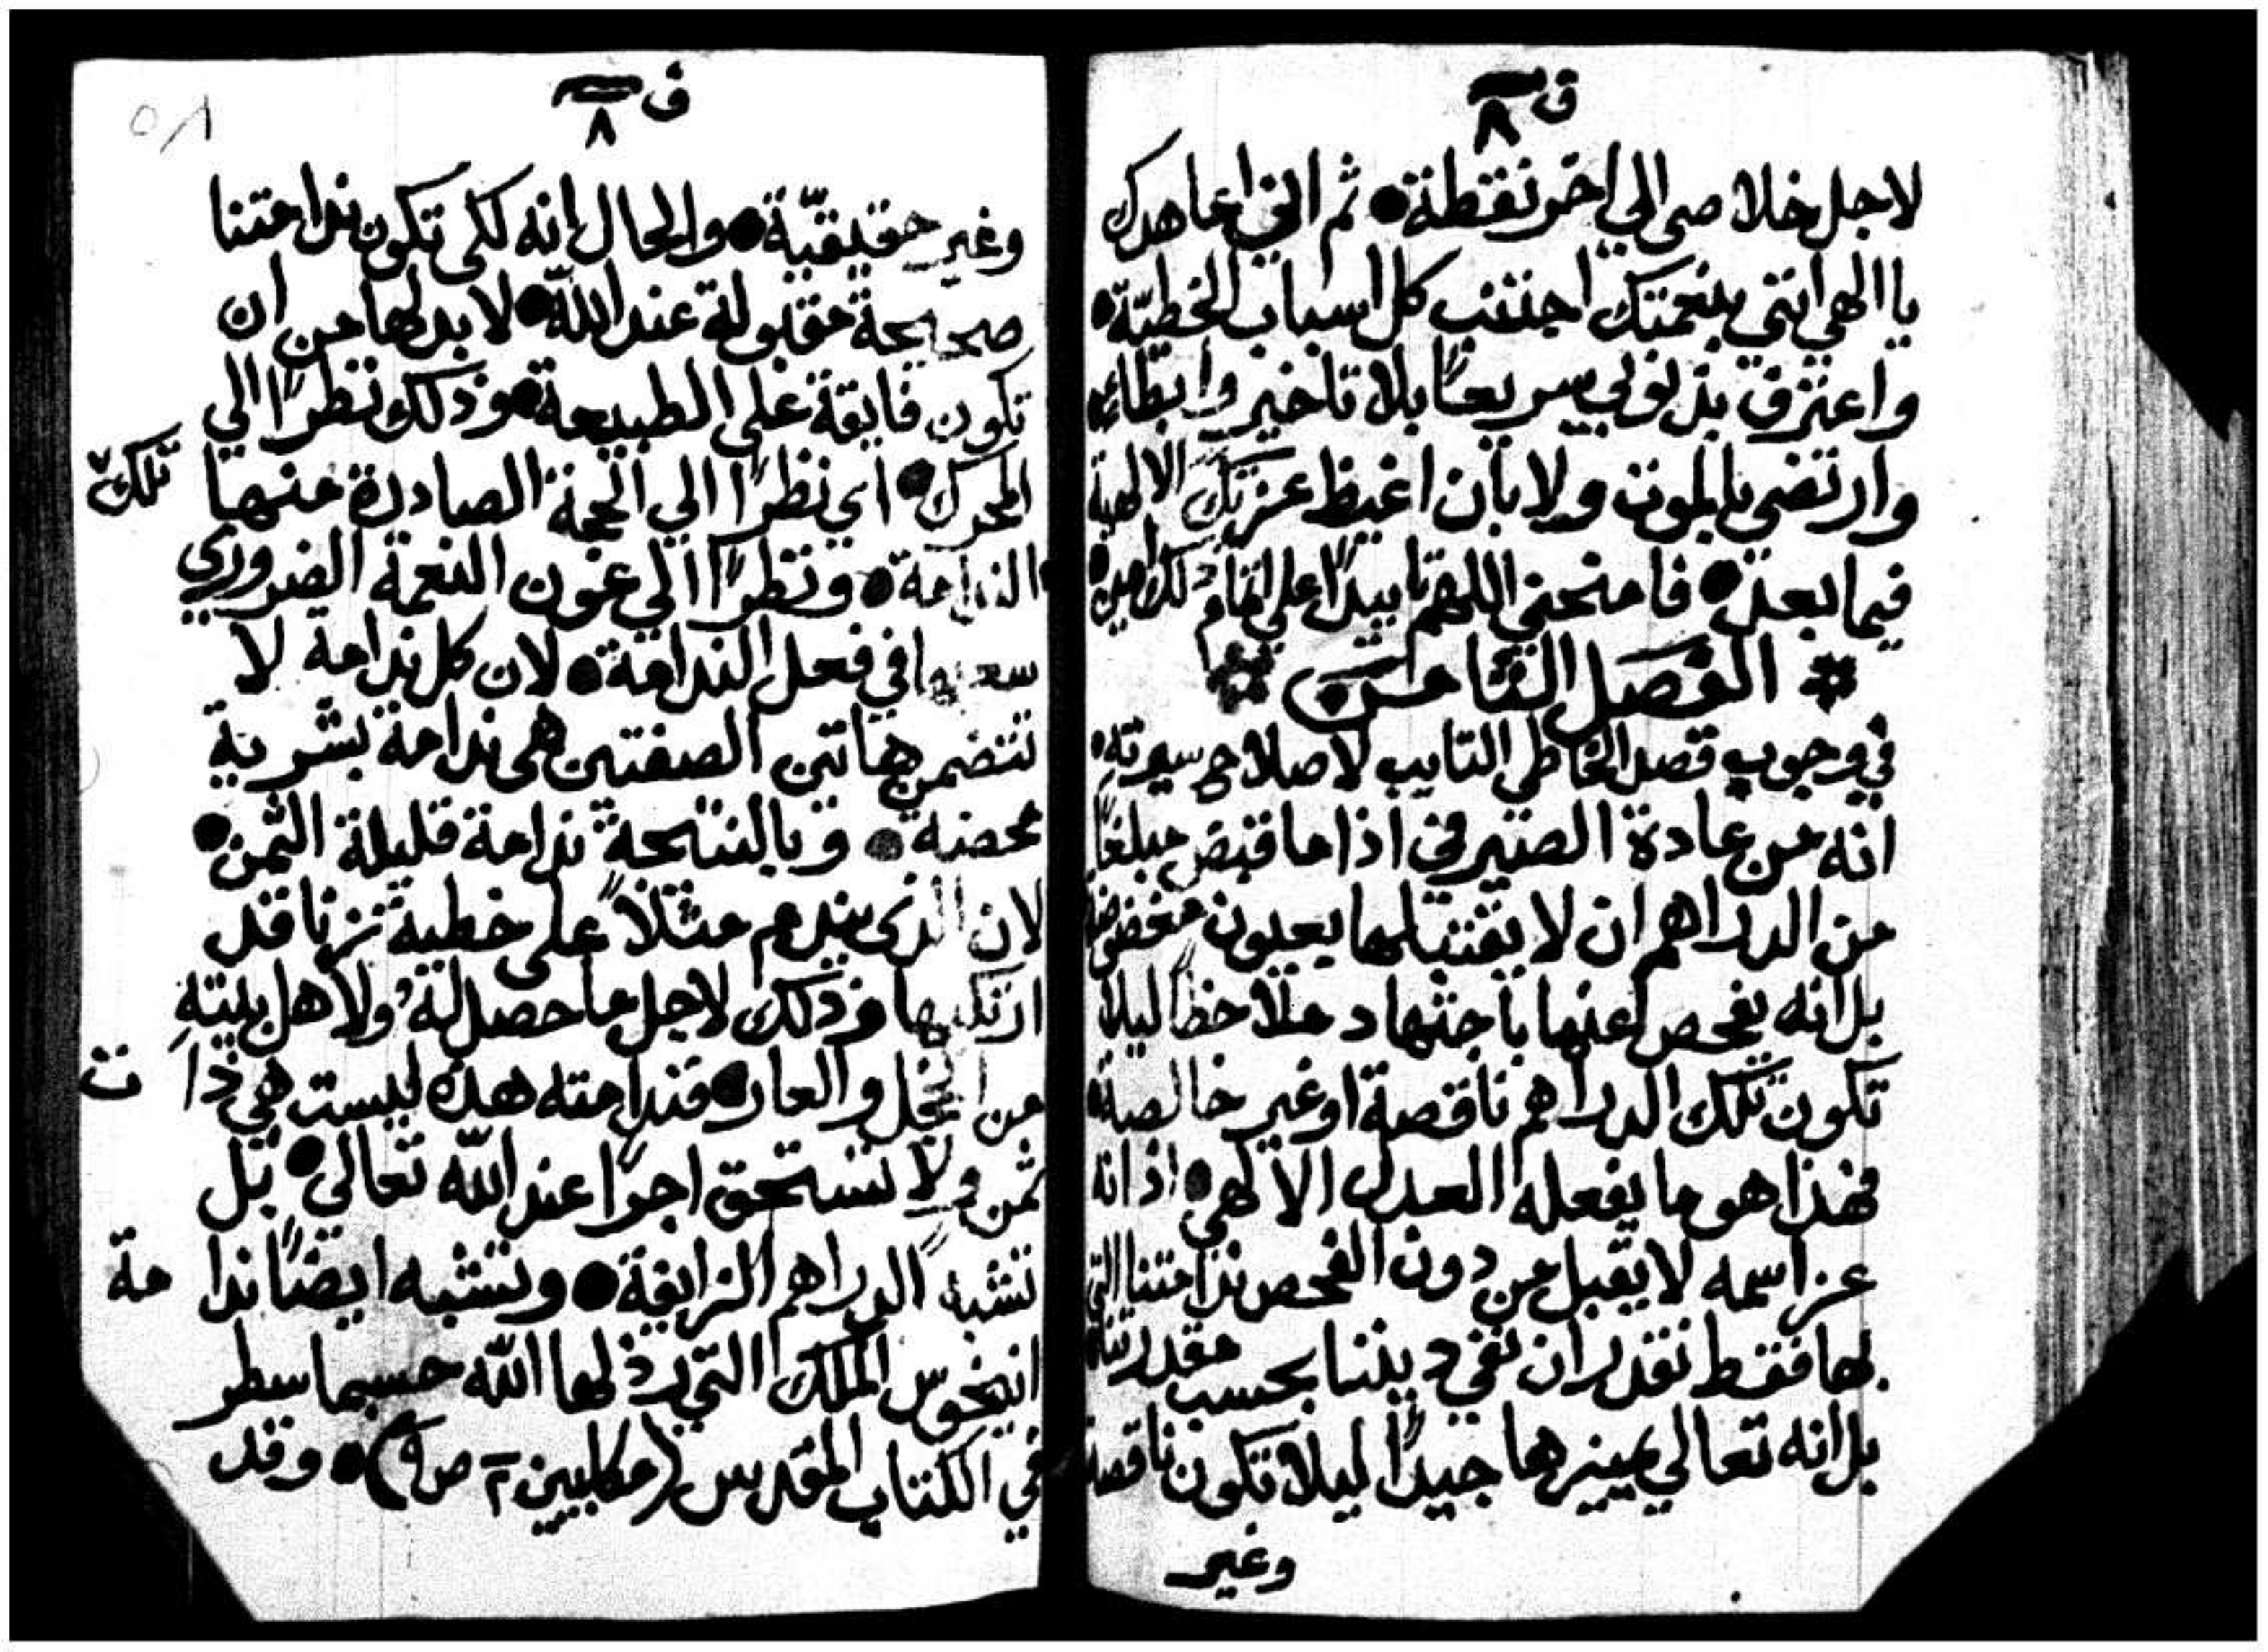 ق ٨
لاجل خلاصي الي اخر نقطة • ثم انني اعاهدك
يا الهي انني بنعمتك اجتنب كل اسباب الخطيّة •
واعترف بذنوبي سريعًا بلا تاخير وابطاء •
وارتضي بالموت ولا بان اغيظ عزتك الالهية
فيما بعد • فامنحني اللهم تاييدًا علي اتمام ذلك امين •
* الفصل الثامن *
في وجوب قصد الخاطي التايب لاصلاح سيرته •
انه من عادة الصيرفي اذا ما قبض مبلغًا
من الدراهم ان لا يقتبلها بعيون مغمضة
بل انه يفحص عنها باجتهاد ملاحظًا ليلا
تكون تلك الدراهم ناقصة او غير خالصة •
فهذا هو ما يفعله العدل الالهي • اذ انه
عز اسمه لا يقبل من دون الفحص ندامتنا التي
بها فقط نقدر ان نفي ديننا بحسب مقدرتنا
بل انه تعالي يميزها جيدًا ليلا تكون ناقصة
وغير
ق ٨
٥٨
وغير حقيقيّة • والحال انه لكي تكون ندامتنا
صحيحة مقبولة عند اللّه • لا بد لها من ان
تكون فايقة علي الطبيعة • وذلك نظرًا الي
المحرك • اي نظرًا الي الجهة الصادرة منها تلك
الندامة • ونظرًا الي عون النعمة الضروري
سعيها في فعل الندامة • لان كل ندامة لا
تتضمن هاتين الصفتين هي ندامة بشرية
محضة • وبالنتيجة ندامة قليلة الثمن •
لان الذي يندم مثلاً علي خطية زنا قد
ارتكبها وذلك لاجل ما حصل له ولاهل بيته
من الخجل والعار • فندامته هذه ليست هي ذات
ثمن ولا تستحق اجرًا عند اللّه تعالي • بل
تشبه الدراهم الزايفة • وتشبه ايضًا ندامة
انتيخوس الملك التي رذلها اللّه حسبما سطر
في الكتاب المقدس (مكابيين ٢ ص ٩) • وقد